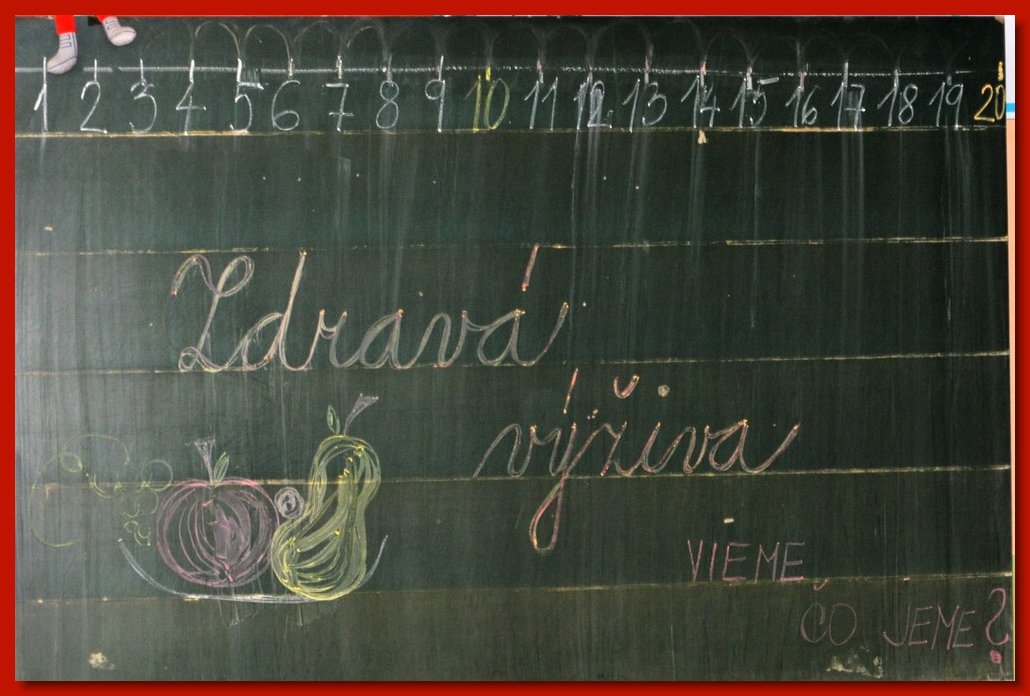 1 2 3 4 5 6 7 8 9 10 11 12 13 14 15 16 17 18 19 20
Zdravá
výživa
VIEME,
ČO JEME?